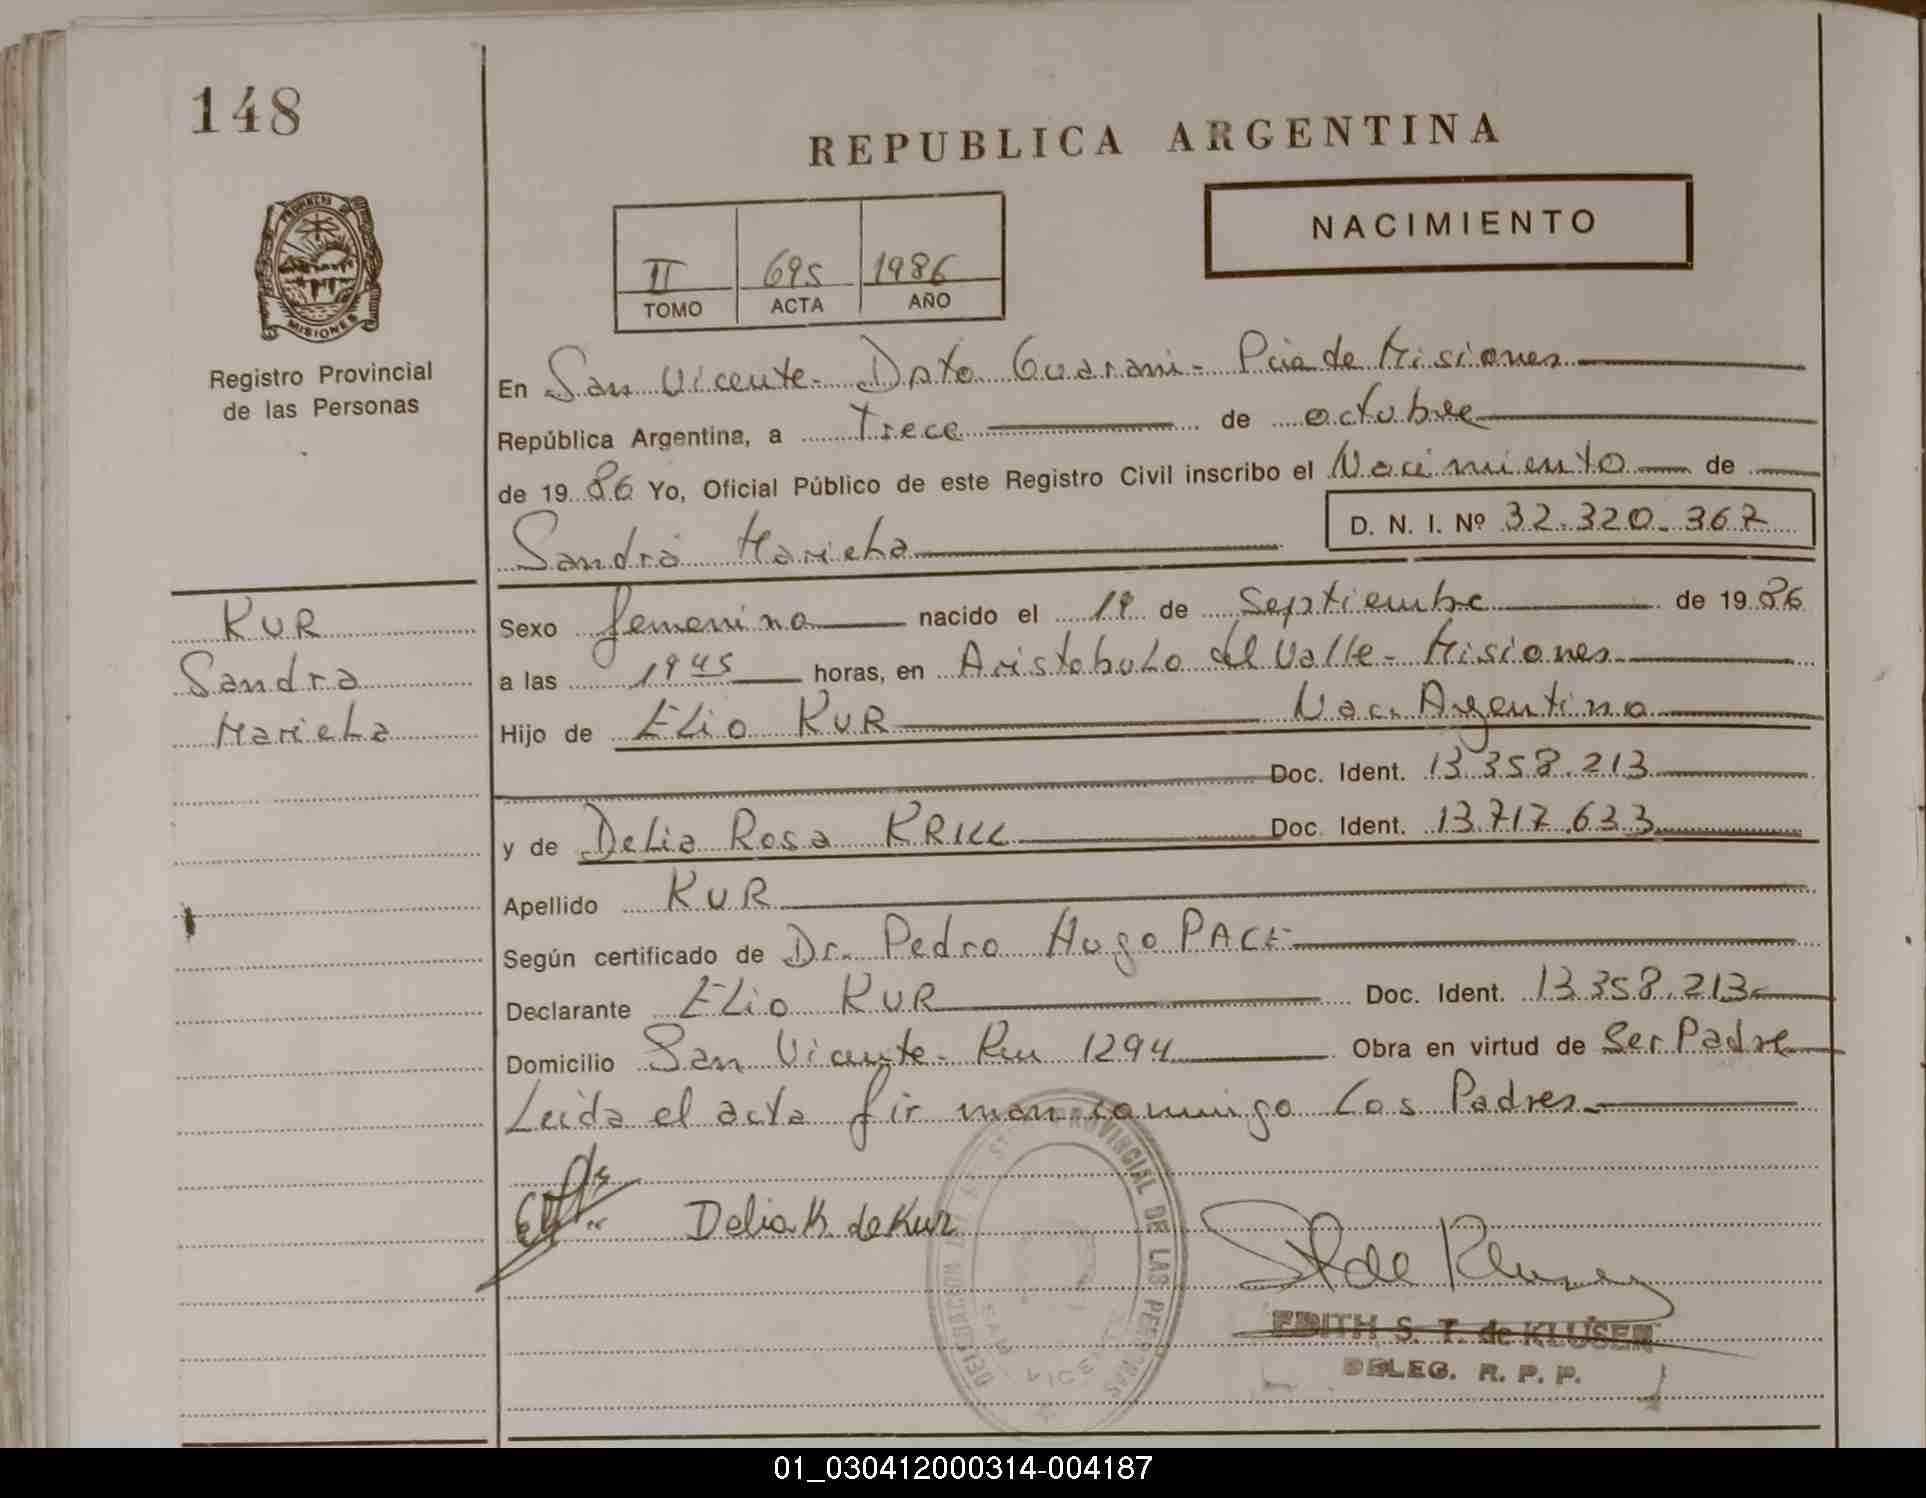 148
REPUBLICA ARGENTINA
NACIMIENTO
II 695 1986
TOMO ACTA AÑO
PROVINCIA DE
MISIONES
Registro Provincial
de las Personas
En San Vicente- Dpto Guarani- Pcia de Misiones
República Argentina, a Trece de octubre
de 1986 Yo, Oficial Público de este Registro Civil inscribo el Nacimiento de
D. N. I. Nº 32.320.367
Sandra Mariela
KUR
Sandra
Mariela
Sexo femenino nacido el de Septiembre de 1986
a las 1945 horas, en Aristobulo del Valle- Misiones
Hijo de Elio KUR Nac. Argentino
Doc. Ident. 13.358.213
y de Delia Rosa KRILL Doc. Ident. 13.717.633
Apellido KUR
Según certificado de Dr. Pedro Hugo PACE
Declarante Elio KUR Doc. Ident. 13.358.213
Domicilio San Vicente- 1294 Obra en virtud de Ser Padre
Leida el acta firman conmigo Los Padres
Delia K. de Kur
DELEGACION REGISTRO PROVINCIAL DE LAS PERSONAS
SAN VICENTE
EDITH S. T. de KLUSENER
DELEG. R. P. P.
01_030412000314-004187